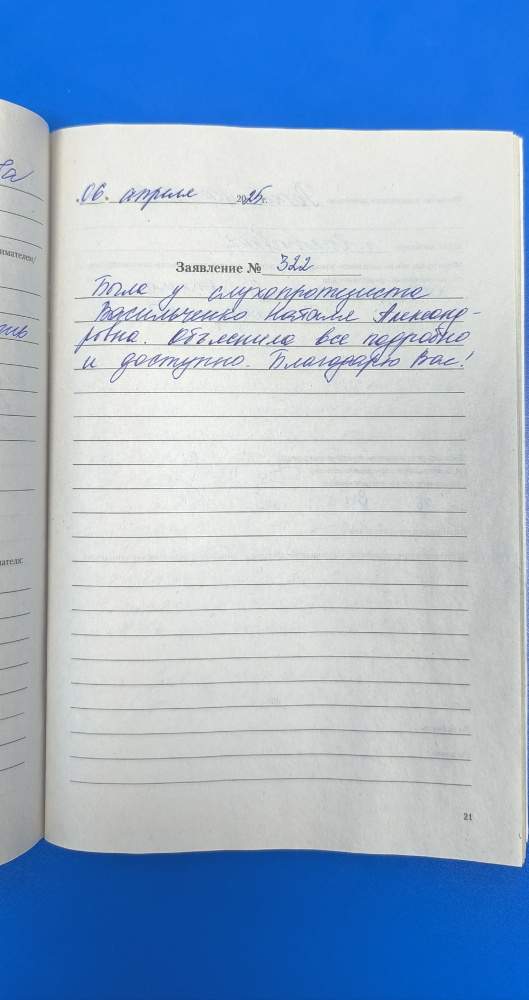 06. апреля 2025г.
Заявление № 322
Была у слухопротезиста
Васильченко Наталя Александ-
ровна. Объяснила все подробно
и доступно. Благодарю Вас!
21